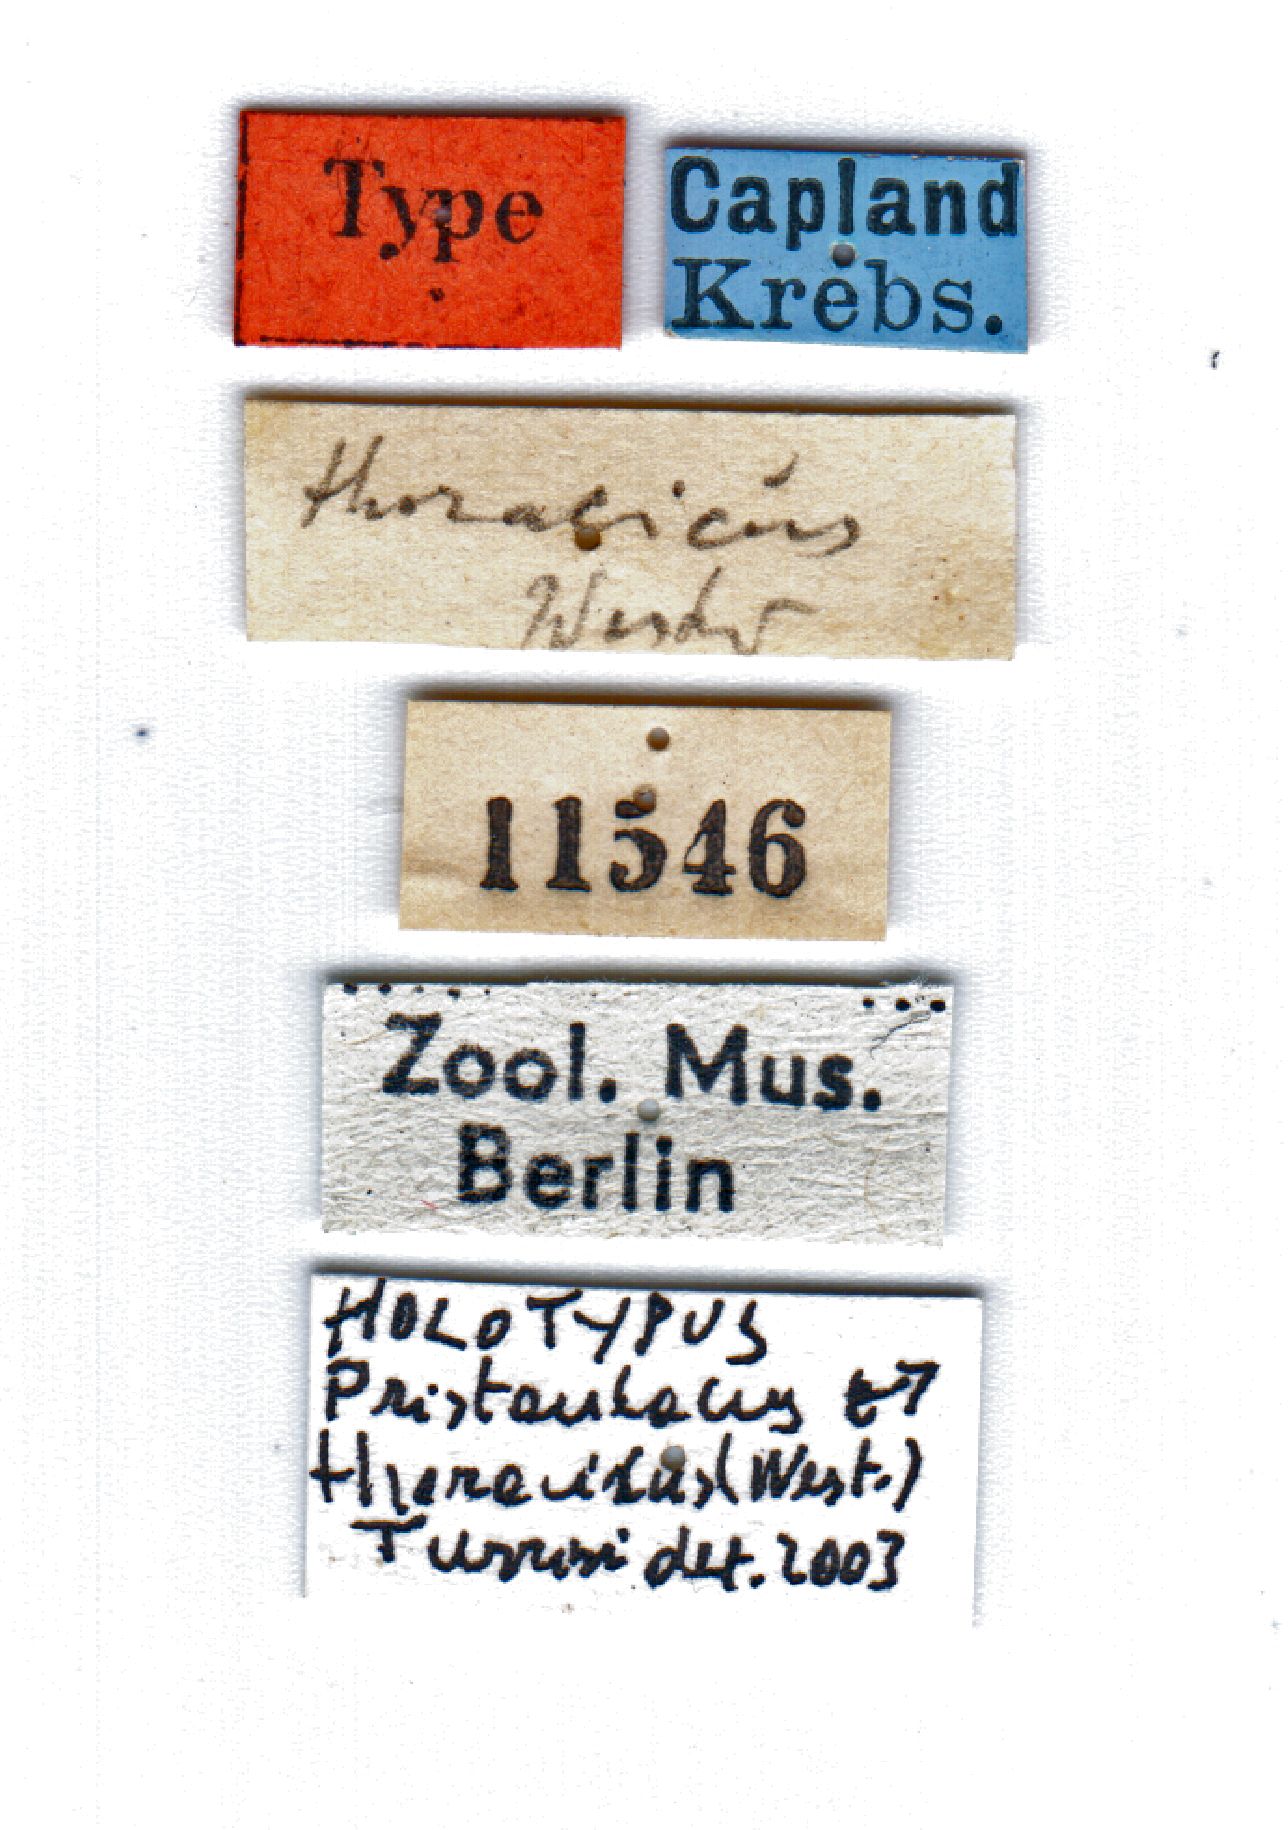 Type
Capland
Krebs.
thoracicus
Westw
11546
Zool. Mus.
Berlin
HOLOTYPUS
Pristaulacus ♂
thoracicus (West.)
Turrisi det. 2003